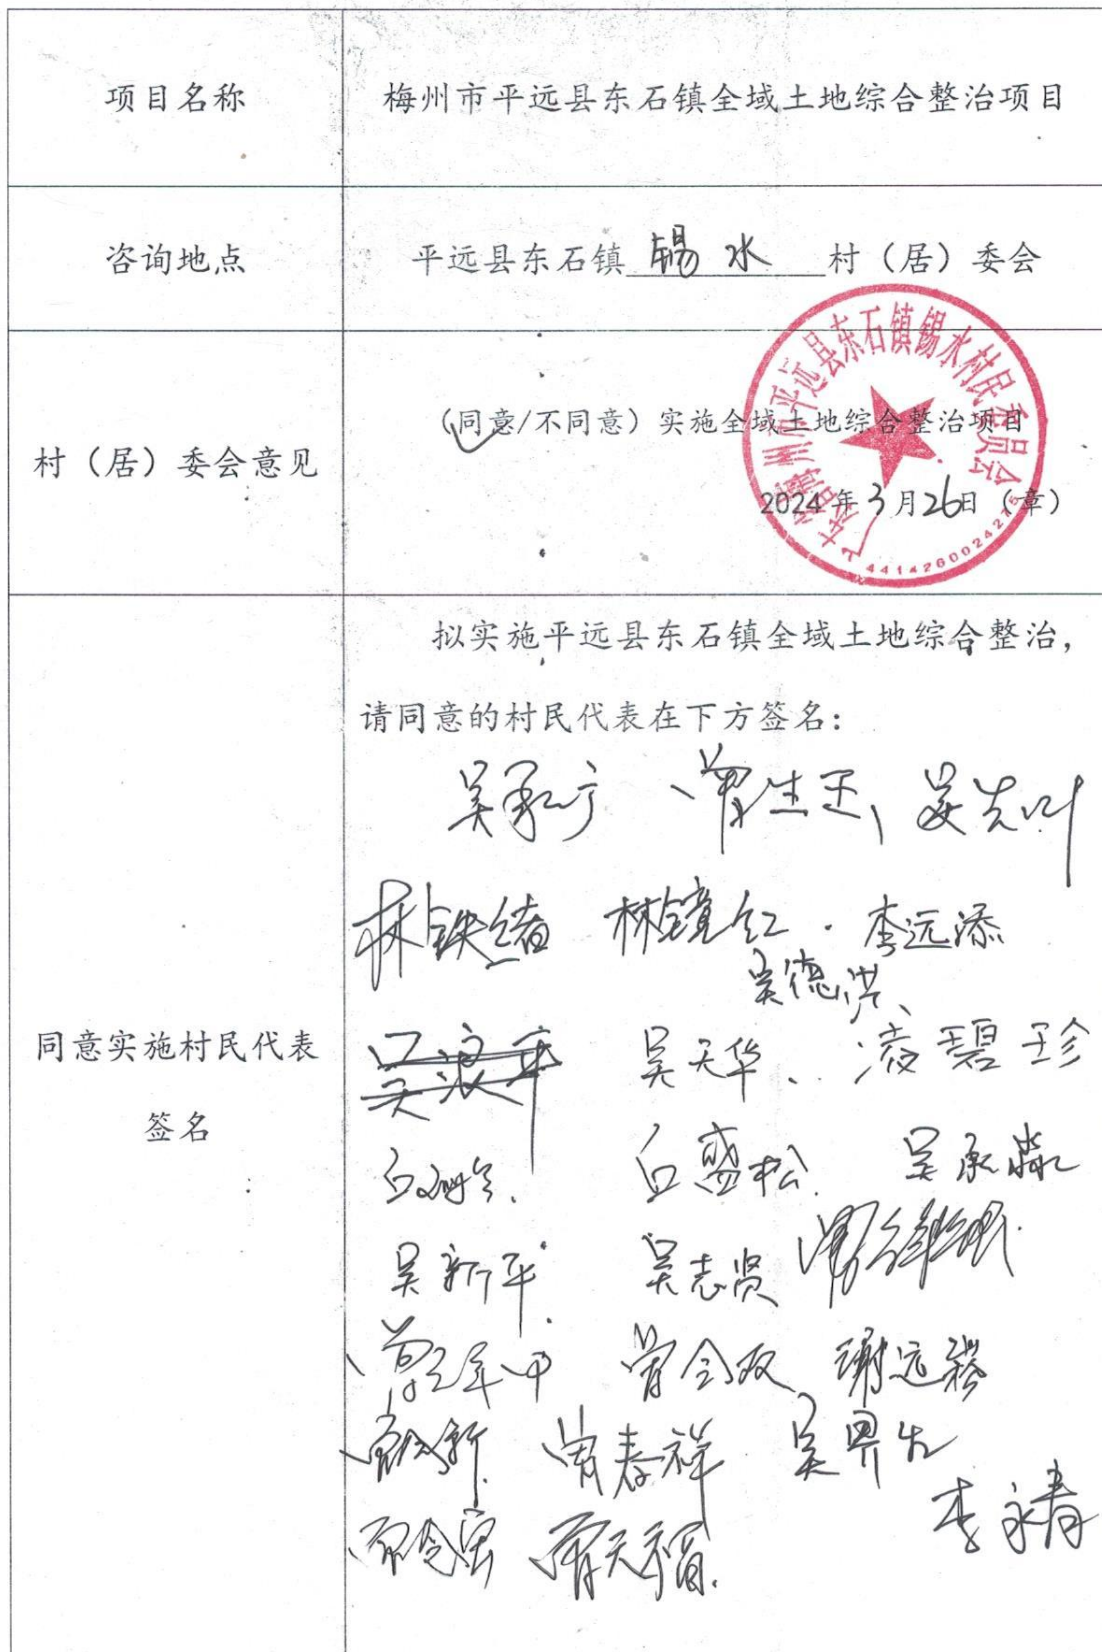 项目名称
梅州市平远县东石镇全域土地综合整治项目
咨询地点
平远县东石镇 锡水 村（居）委会
村（居）委会意见
（同意/不同意）实施全域土地综合整治项目
2024年3月26日（章）
广东省梅州市平远县东石镇锡水村民委员会
4414260024275
同意实施村民代表
签名
拟实施平远县东石镇全域土地综合整治，
请同意的村民代表在下方签名：
吴承广 曾生玉、
林铁绪 林镜红. 李远添
吴德洪、
吴浪平 吴天华、凌碧珍
盛松. 吴承淼
吴新平 吴志贤
曾令双 谢远
曾春祥 吴界生
李永青
曾天福.